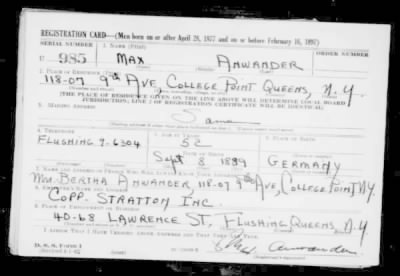 REGISTRATION CARD—(Men born on or after April 28, 1877 and on or before February 16, 1897)
SERIAL NUMBER 1. NAME (Print)
U 985 MAX ANWANDER
2. PLACE OF RESIDENCE (Print)
118-07 9th AVE, COLLEGE POINT QUEENS, N.Y.
[THE PLACE OF RESIDENCE GIVEN ON THE LINE ABOVE WILL DETERMINE LOCAL BOARD
JURISDICTION; LINE 2 OF REGISTRATION CERTIFICATE WILL BE IDENTICAL]
3. MAILING ADDRESS
Same
4. TELEPHONE 5. AGE IN YEARS 6. PLACE OF BIRTH
FLUSHING 9-6304 52
DATE OF BIRTH
Sept 8 1889 GERMANY
7. NAME AND ADDRESS OF PERSON WHO WILL ALWAYS KNOW YOUR ADDRESS
Mrs. BERTHA ANWANDER, 118-07 9th AVE, COLLEGE POINT N.Y.
8. EMPLOYER'S NAME AND ADDRESS
COPP. STRATTON INC.
9. PLACE OF EMPLOYMENT OR BUSINESS
40-68 LAWRENCE ST, FLUSHING, QUEENS, N.Y.
I AFFIRM THAT I HAVE VERIFIED ABOVE ANSWERS AND THAT THEY ARE TRUE.
D. S. S. Form 1
Max Anwander